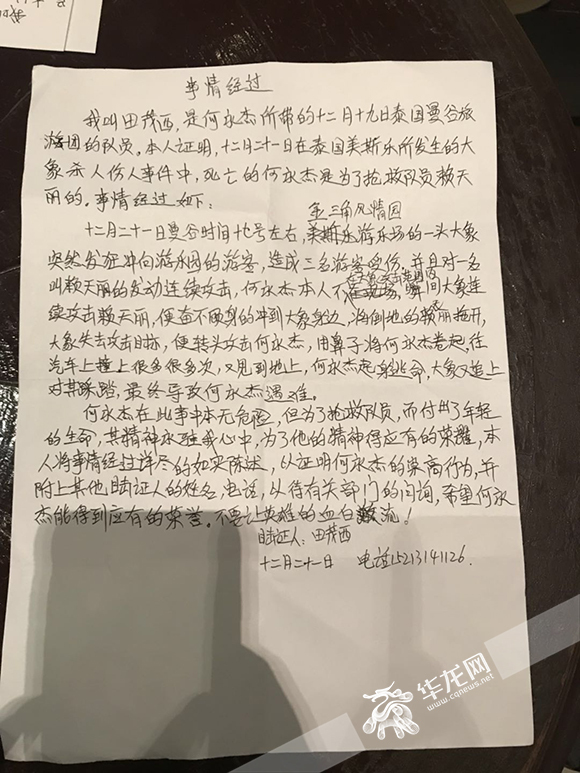 事情经过
我叫田茂西，是何永杰所带的十二月十九日泰国曼谷旅
游团的队员。本人证明，十二月二十一日在泰国美斯乐所发生的大
象杀人伤人事件中，死亡的何永杰是为了抢救队员赖天
丽的。事情经过如下：
金三角风情园
十二月二十一日曼谷时间十七号左右，美斯乐游乐场的一头大象
突然发狂冲向游乐园的游客，造成三名游客受伤，并且对一名
叫赖天丽的发动连续攻击，何永杰本人不在现场，瞬间大象连
续攻击赖天丽，便奋不顾身的冲到大象身边，将倒地的赖天丽拖开，
大象失去攻击目标，便转头攻击何永杰，用鼻子将何永杰卷起，往
汽车上撞上很多很多次，又见到地上，何永杰起身逃命，大象又追上
对其踩踏，最终导致何永杰遇难。
何永杰在此事中本无危险，但为了抢救队员，而付出了年轻
的生命，其精神永驻我心中，为了他的精神得应有的荣耀，本
人将事情经过详尽的如实陈述，以证明何永杰的崇高行为，并
附上其他目证人的姓名，电话，以待有关部门的问询，希望何永
杰能得到应有的荣誉。不要让英雄的血白流！
目证人：田茂西
十二月二十一日 电话15213141126.
华龙网
www.cqnews.net